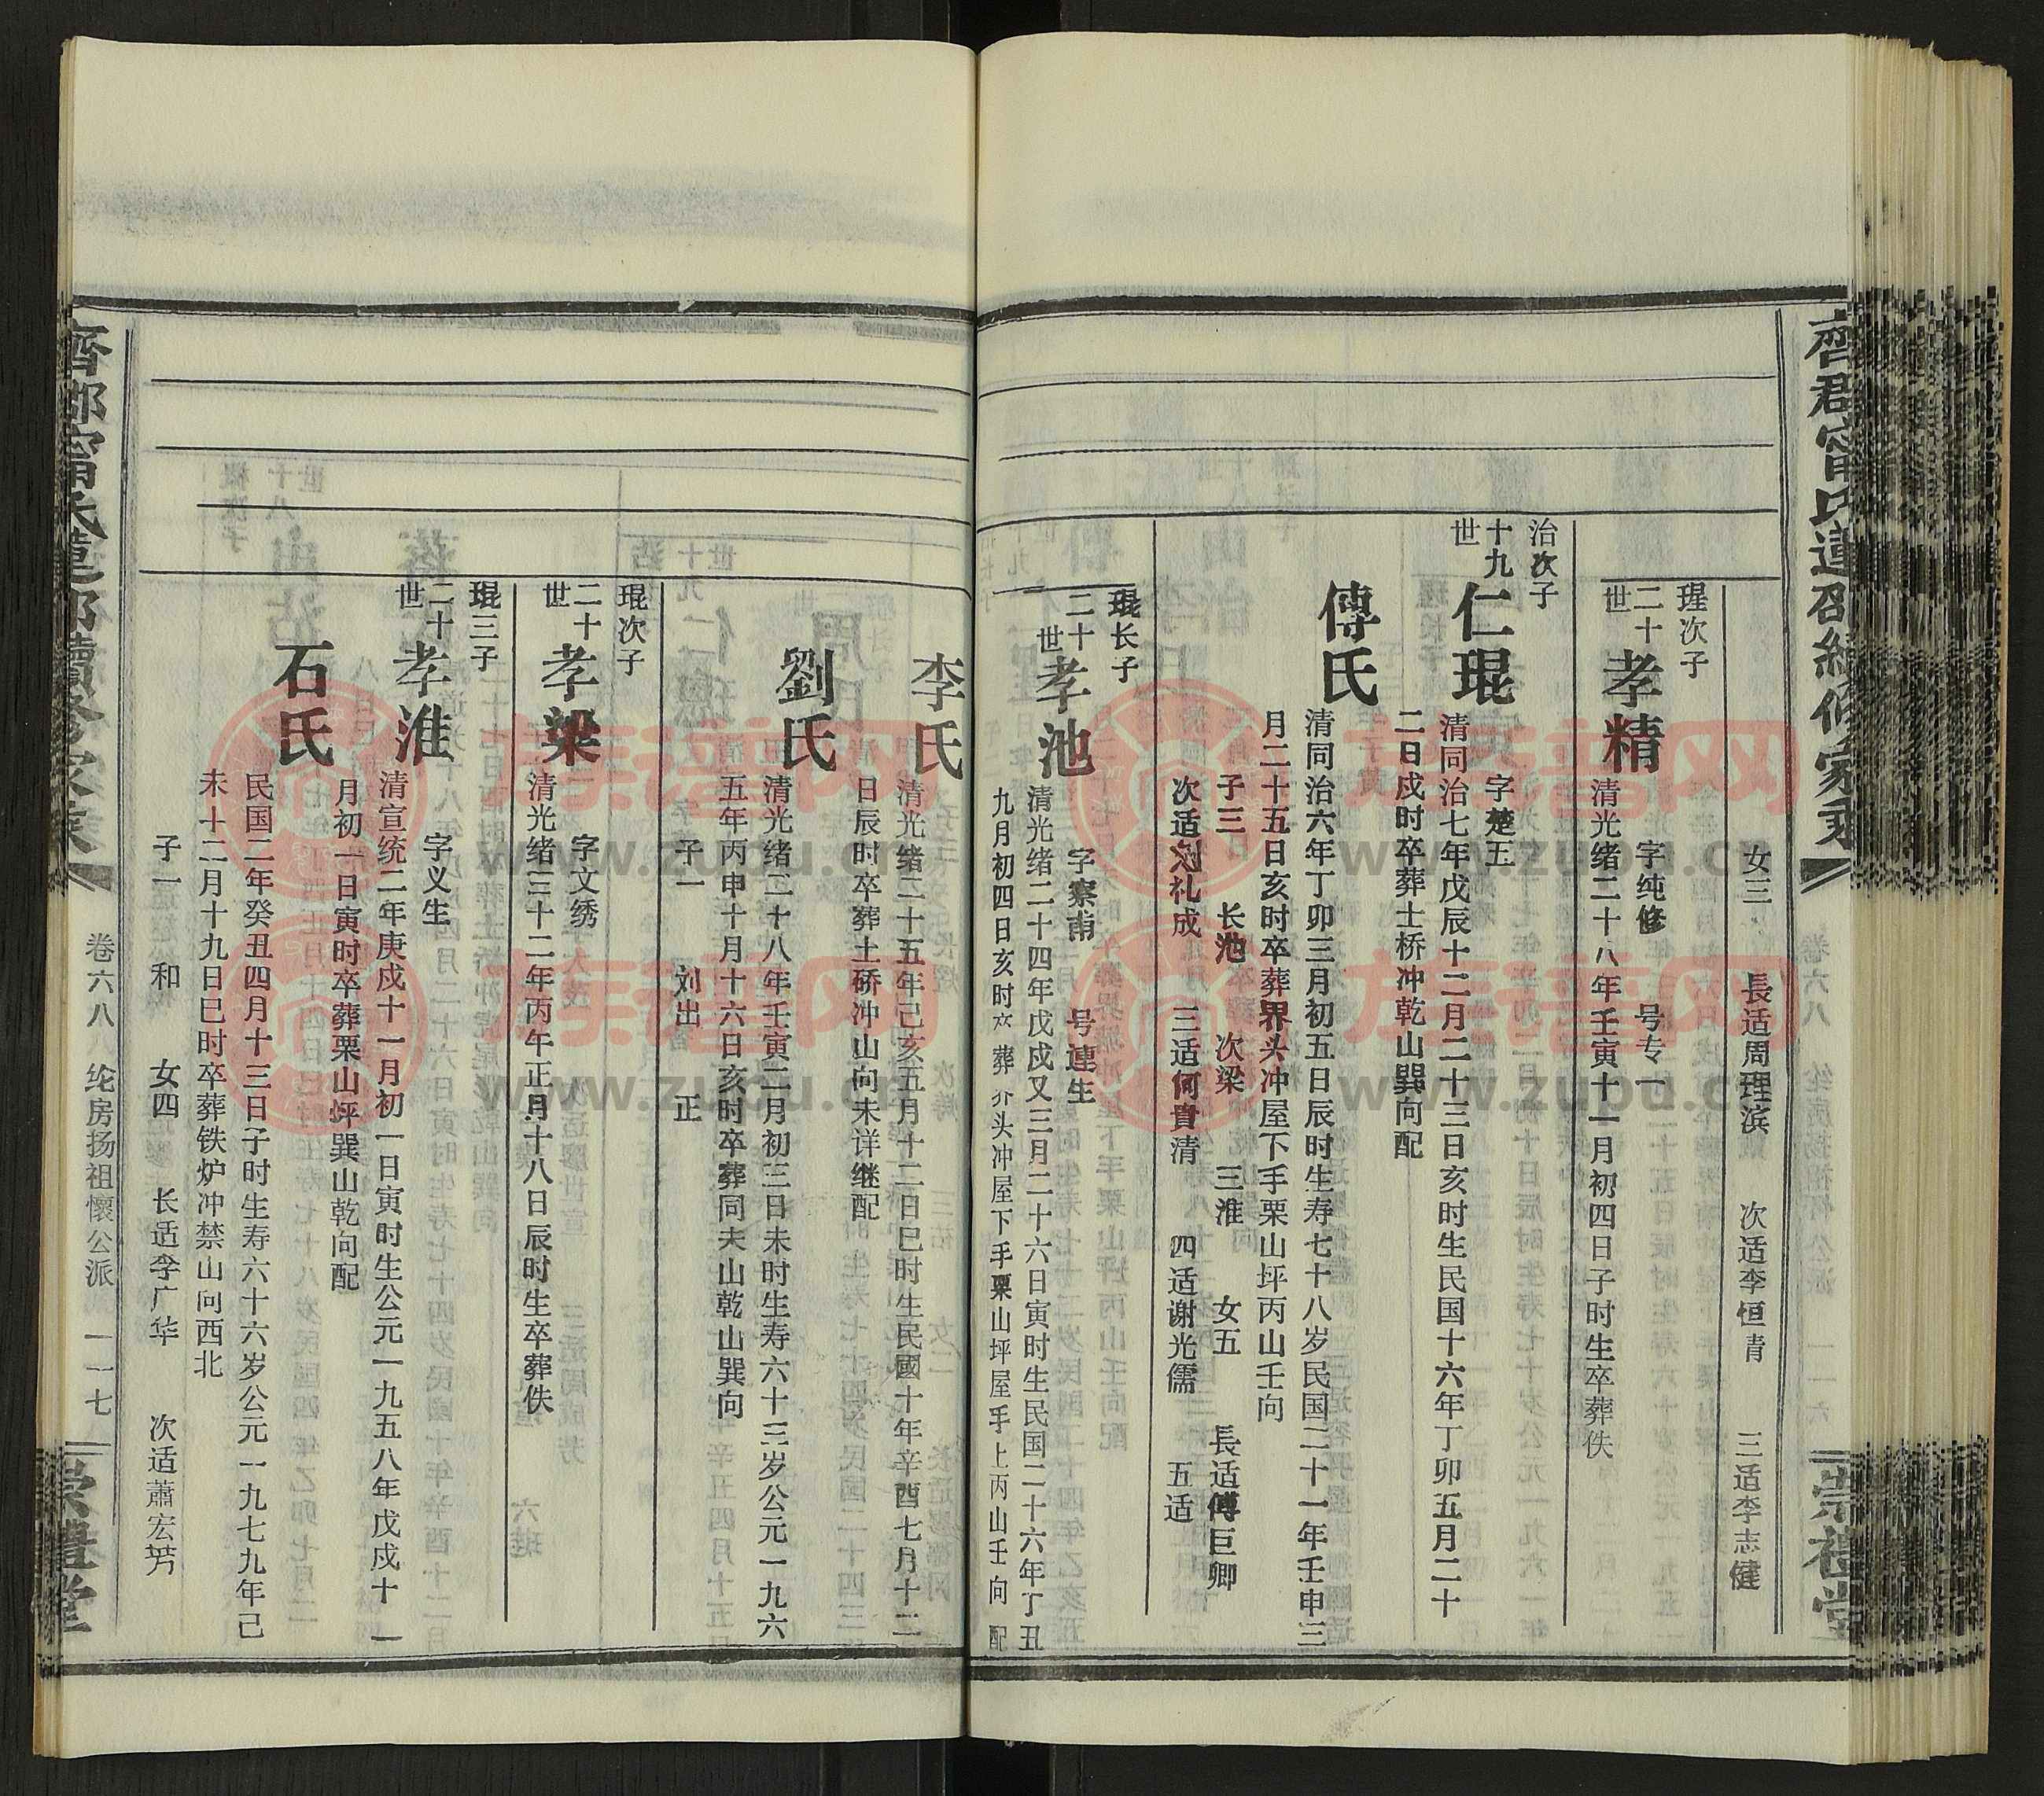 齊郡甯氏蓮邵續修家乘
崇禮堂
女三 長适周理滨 次适李恒青 三适李志健
瑆次子
二十世
孝精
字纯修 号专一
清光绪二十八年壬寅十一月初四日子时生卒葬佚
治次子
十九世
仁琨
字楚玉
清同治七年戊辰十二月二十三日亥时生民国十六年丁卯五月二十
二日戌时卒葬士桥冲乾山巽向配
傅氏
清同治六年丁卯三月初五日辰时生寿七十八岁民国二十一年壬申三
月二十五日亥时卒葬界头冲屋下手栗山坪丙山壬向
子三 长池 次梁 三淮 女五 長适傅巨卿
次适刘礼成 三适何貴清 四适谢光儒 五适
琨长子
二十世
孝池
字察甫 号連生
清光绪二十四年戊戌又三月二十六日寅时生民国二十六年丁丑
九月初四日亥时卒葬界头冲屋下手栗山坪屋手上丙山壬向配
李氏
清光绪二十五年己亥五月十二日巳时生民國十年辛酉七月十二
日辰时卒葬土硚冲山向未详继配
劉氏
清光绪二十八年壬寅二月初三日未时生寿六十三岁公元一九六
五年丙申十月十六日亥时卒葬同夫山乾山巽向
子一 刘出 正
琨次子
二十世
孝梁
字文绣
清光绪三十二年丙午正月十八日辰时生卒葬佚
琨三子
二十世
孝淮
字义生
清宣统二年庚戌十一月初一日寅时生公元一九五八年戊戌十一
月初一日寅时卒葬栗山坪巽山乾向配
石氏
民国二年癸丑四月十三日子时生寿六十六岁公元一九七九年己
未十二月十九日巳时卒葬铁炉冲禁山向西北
子一 和 女四 长适李广华 次适蕭宏芳
齊郡甯氏蓮邵續修家乘
卷六八 纶房扬祖懷公派 一一七
崇禮堂
族谱网
www.zupu.cn
族谱网
www.zupu.cn
族谱网
www.zupu.cn
族谱网
www.zupu.cn